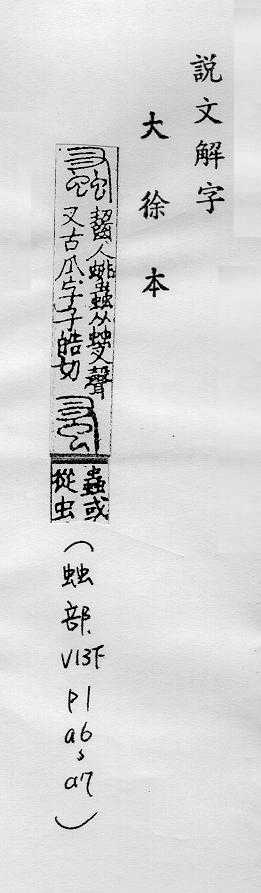 說文解字
大徐本
齧人跳蟲从䖵叉聲
叉古爪字子皓切
或
從虫
(䖵部.V13下P1a6、a7)